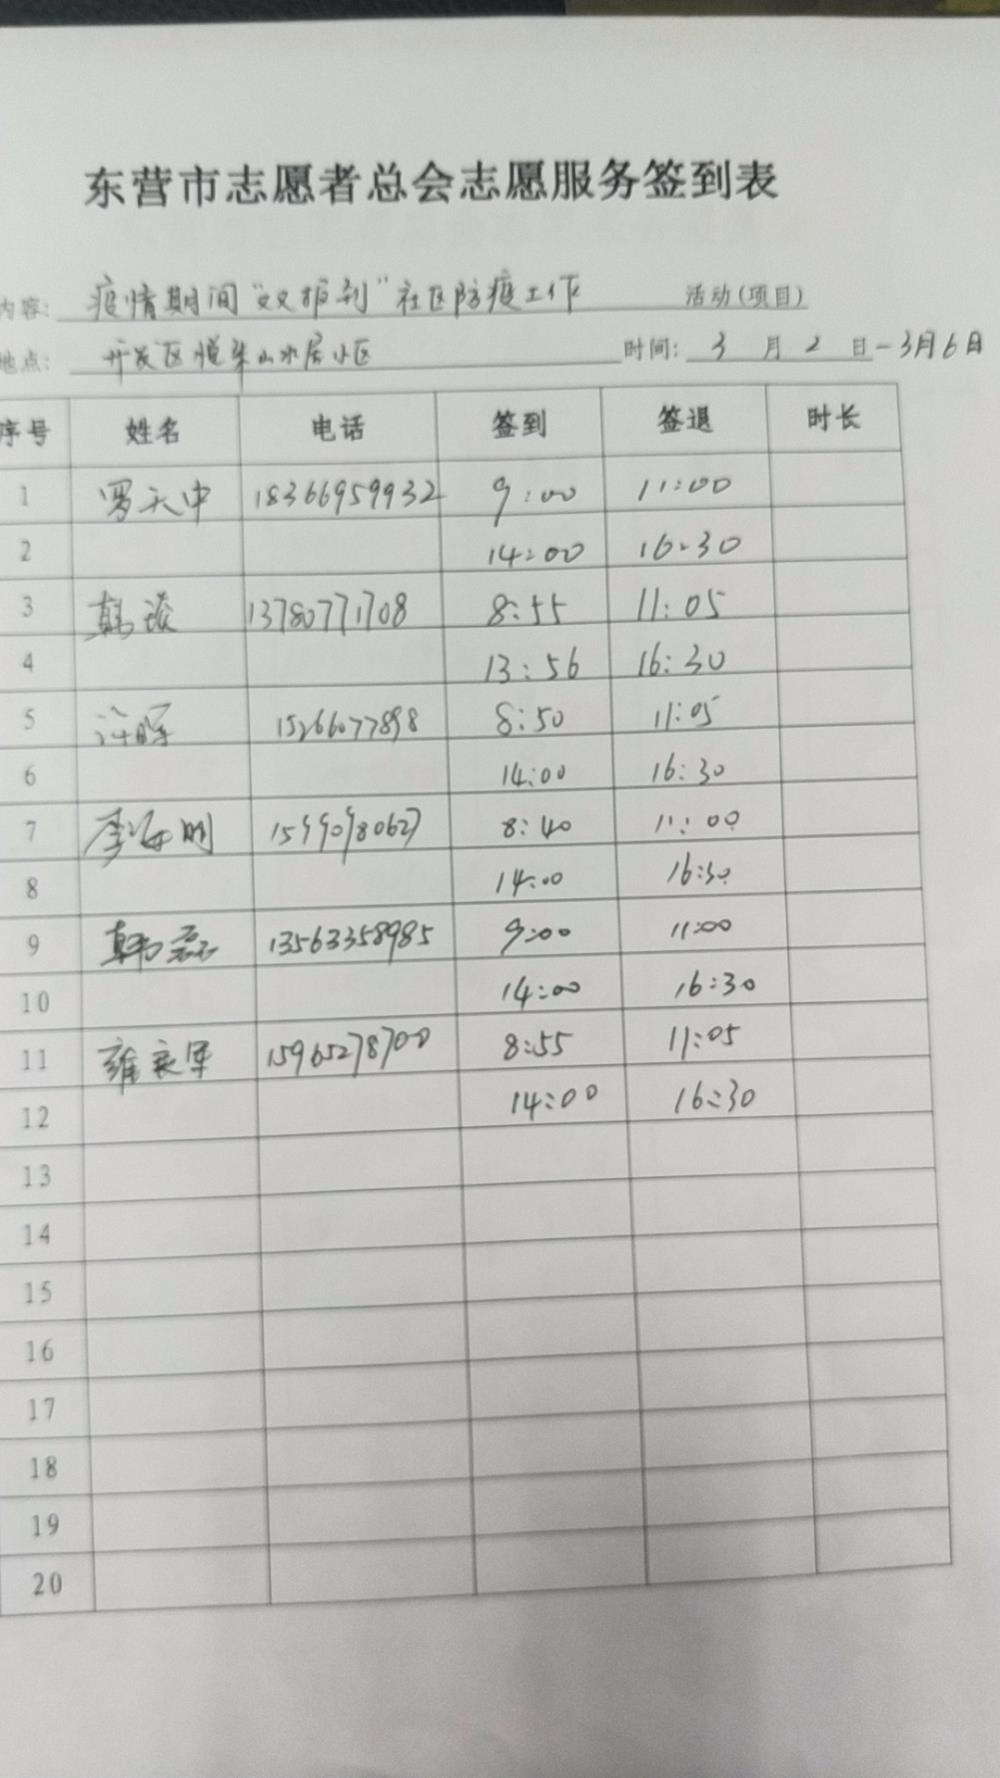 东营市志愿者总会志愿服务签到表
内容: 疫情期间“双报到”社区防疫工作 活动(项目)
地点: 开发区悦来山水居小区 时间: 3 月 2 日-3月6日
序号 姓名 电话 签到 签退 时长
1 罗天中 18366959932 9:00 11:00
2 14:00 16:30
3 韩 13780771708 8:55 11:05
4 13:56 16:30
5 许晖 15266077898 8:50 11:05
6 14:00 16:30
7 李海明 8:40 11:00
8 14:00 16:30
9 韩磊 13563358985 9:00 11:00
10 14:00 16:30
11 雍良军 15965278700 8:55 11:05
12 14:00 16:30
13
14
15
16
17
18
19
20